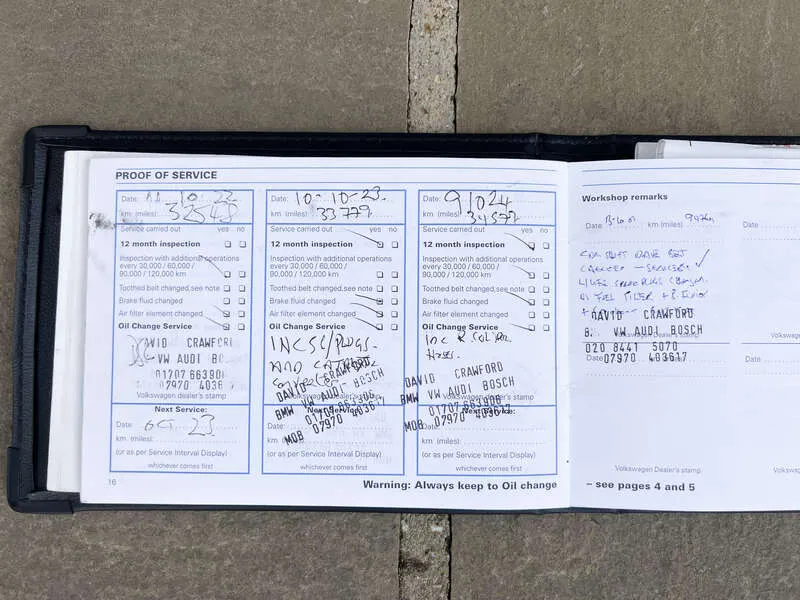 PROOF OF SERVICE
Date: 10 22
km (miles) 32548
Service carried out yes no
12 month inspection
Inspection with additional operations
every 30,000 / 60,000 /
90,000 / 120,000 km
Toothed belt changed, see note
Brake fluid changed
Air filter element changed
Oil Change Service
DAVID CRAWFORD
VW AUDI BO
01707 663906
07970 4036
Volkswagen dealer's stamp
Next Service:
Date: 23
km (miles)
(or as per Service Interval Display)
whichever comes first
Date: 10-10-23.
km (miles) 33779
Service carried out yes no
12 month inspection
Inspection with additional operations
every 30,000 / 60,000 /
90,000 / 120,000 km
Toothed belt changed, see note
Brake fluid changed
Air filter element changed
Oil Change Service
INC SC/PLUGS.
AND
DAVID CRAWFORD
BMW VW AUDI BOSCH
01707 663906
MOB 07970 403617
Next Service:
Date:
km (miles)
(or as per Service Interval Display)
whichever comes first
Date: 91024
km (miles) 34577
Service carried out yes no
12 month inspection
Inspection with additional operations
every 30,000 / 60,000 /
90,000 / 120,000 km
Toothed belt changed, see note
Brake fluid changed
Air filter element changed
Oil Change Service
INC
DAVID CRAWFORD
BMW VW AUDI BOSCH
01707 663906
Volkswagen dealer's stamp
MOB 07970 403617
Next Service:
Date:
km (miles)
(or as per Service Interval Display)
whichever comes first
16
Warning: Always keep to Oil change
Workshop remarks
Date km (miles)
Date
DAVID CRAWFORD
VW AUDI BOSCH
020 8441 5070
Date 07970 403617
Date
Volkswagen Dealer's stamp
Volkswagen
– see pages 4 and 5